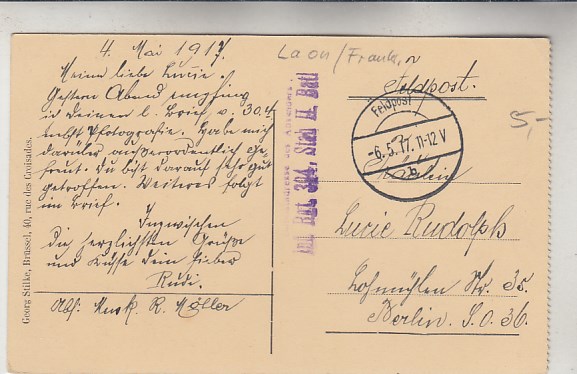 4. Mai 1917.
Meine liebe Lucie.
Gestern Abend empfing
ich Deinen l. Brief v. 30.4.
nebst Photografie. Habe mich
darüber außerordentlich ge-
freut. Du bist darauf sehr gut
getroffen. Weiteres folgt
im Brief.
Inzwischen
die herzlichsten Grüße
und Küsse Dein lieber
Rudi.
Abs: Musk. R. Möller
Georg Stilke, Brüssel, 40, rue des Croisades.
Laon/Frank.
Feldpost.
5,-
Feldpost
-6.5.17. 11-12 V
b
Inf. Rgt. 394, Stab II. Batl
Fräulein
Lucie Rudolph
Lohmühlen Str. 35.
Berlin. S.O. 36.